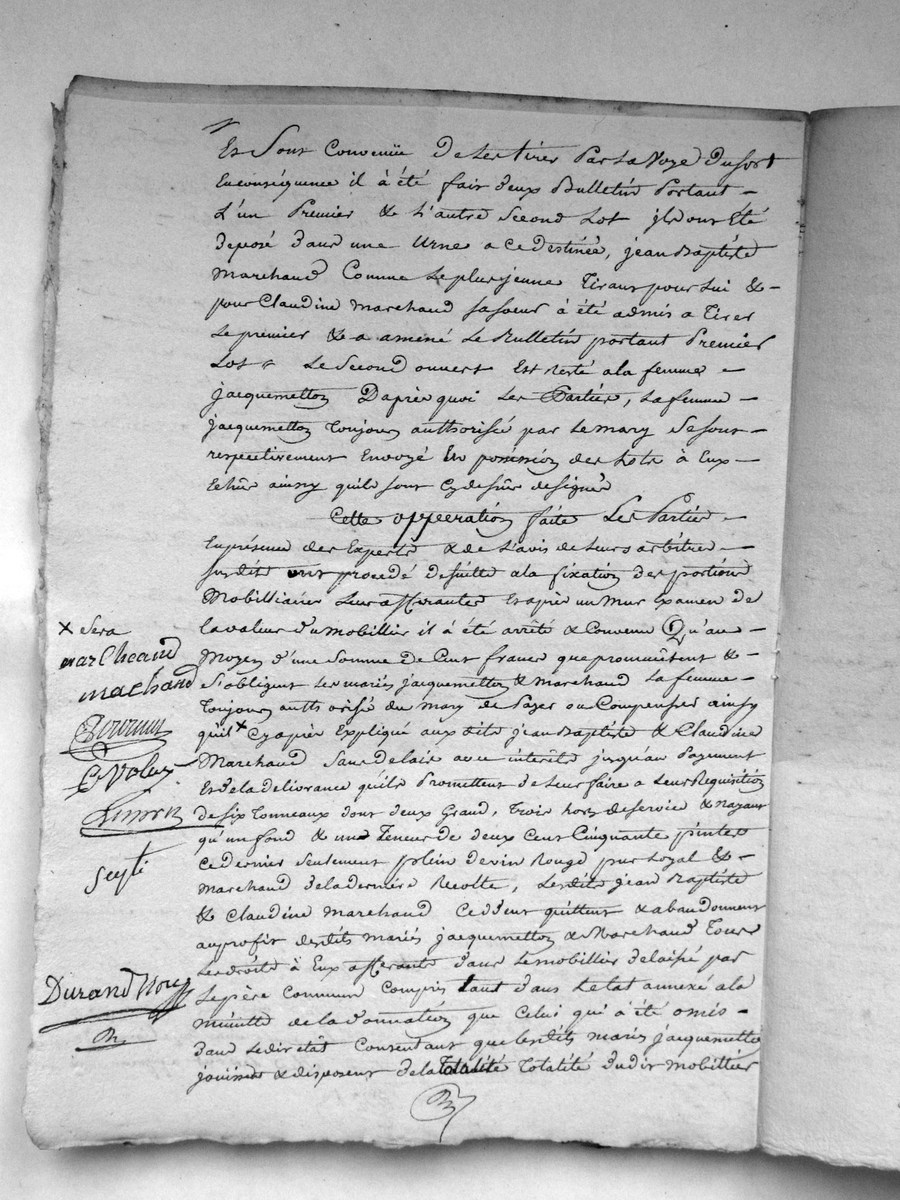 Et Sont Convenüe De les tirer Par la Voye Du sort
En conséquence il à été fait deux Bulletin Portant -
L'un Premier & L'autre Second Lot jls ont Eté
Deposé dans une Urne a ce destinée, jean Baptiste
Marchand Comme le plus jeune Tirant pour Lui & -
pour Claudine Marchand sa soeur à été admis a Tirer
Le premier & a amené Le Bulletin portant Premier
Lot Le Second ouvert Est resté a la femme -
jacquemetton D'après quoi Les Parties, La femme -
jacquemetton Toujours authorisée par Le mary Se sont -
respectivement Envoyé En possession des Lots à Eux -
Echûs ainsy quils sont Cy dessûs designés
Cette opperation faite Les Parties -
En présence des Experts & de L'avis de Leurs arbitres -
susdits ont procedé de suitte a la fixation des portions
Mobilliaires Leurs afferantes Et après un Mur Examen de
la valeur du mobillier il à été arrêté & Convenu Qu'au
Moyen d'une Somme de Cent francs que promettent & -
S'obligent Les mariés jacquemetton & Marchand La femme -
Toujours authorisée du mary de Payer ou Compenser ainsy
quil x Cy après Expliqué aux dits jean Baptiste & Claudine
Marchand Sans delais avec interêts jusqu'au Payement
Et de la delivrance qu'ils Promettent de Leur faire a Leur Requisition
de six Tonneaux dont deux Grand, Trois hors de service & n'ayant
qu'un fond & un Teneur de deux Cent Cinquante pintes
ce dernier seulement plein de vin Rouge pur Loyal & -
Marchand de la derniere Recolte, Lesdits jean Baptiste
& Claudine Marchand Cedent quittent & abandonnent
au profit desdits mariés jacquemetton & Marchand Tous
Les droits à Eux afferants dans Le mobillier delaissé par
Le père Commun Compris tant dans L'etat annexé a la
minutte de la donnation que Celui qui à été omis -
dans Ledit etat Consentant que Lesdits mariés jacquemetton
jouissent & disposent de la Totalité dudit Mobillier
x Sera
marChcand
machand
Durand Nore